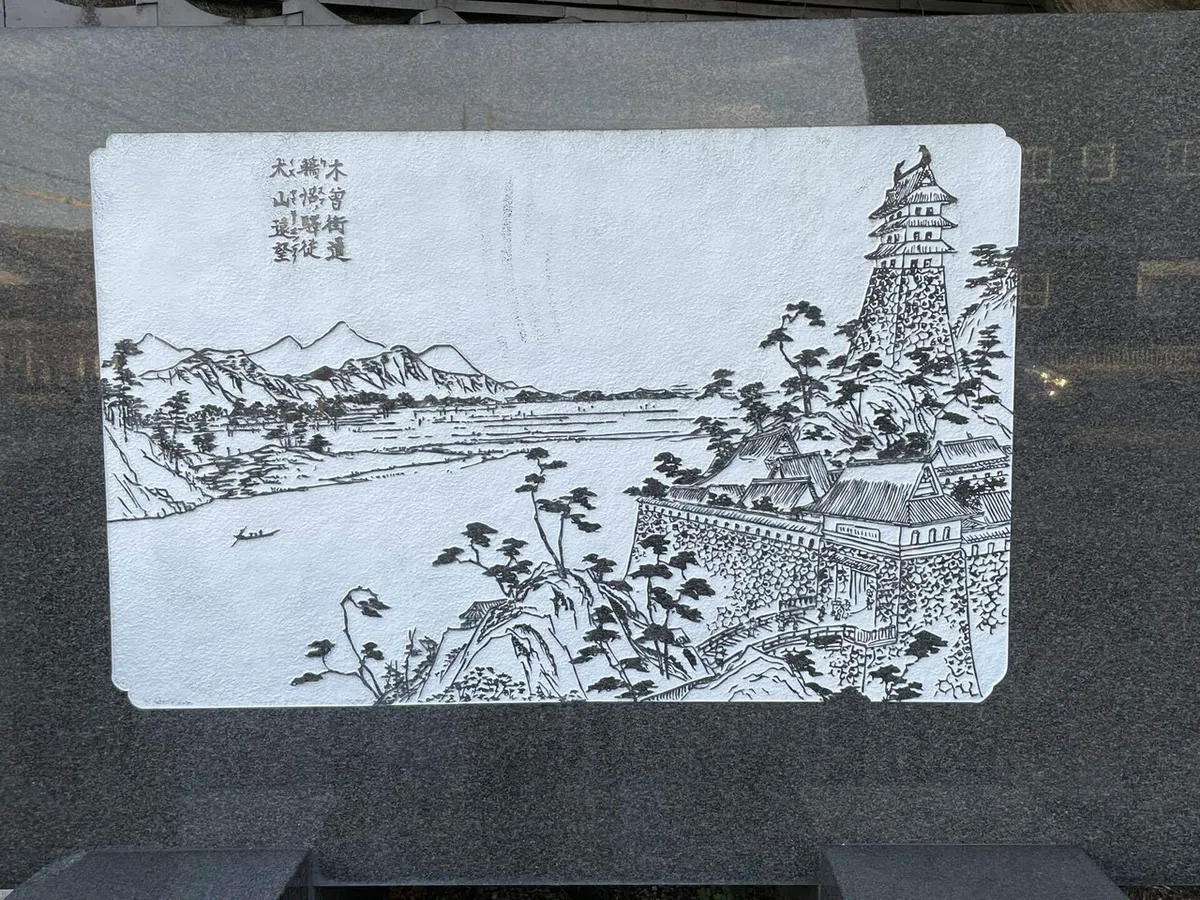 木曾街道
鵜沼驛従
犬山遠望